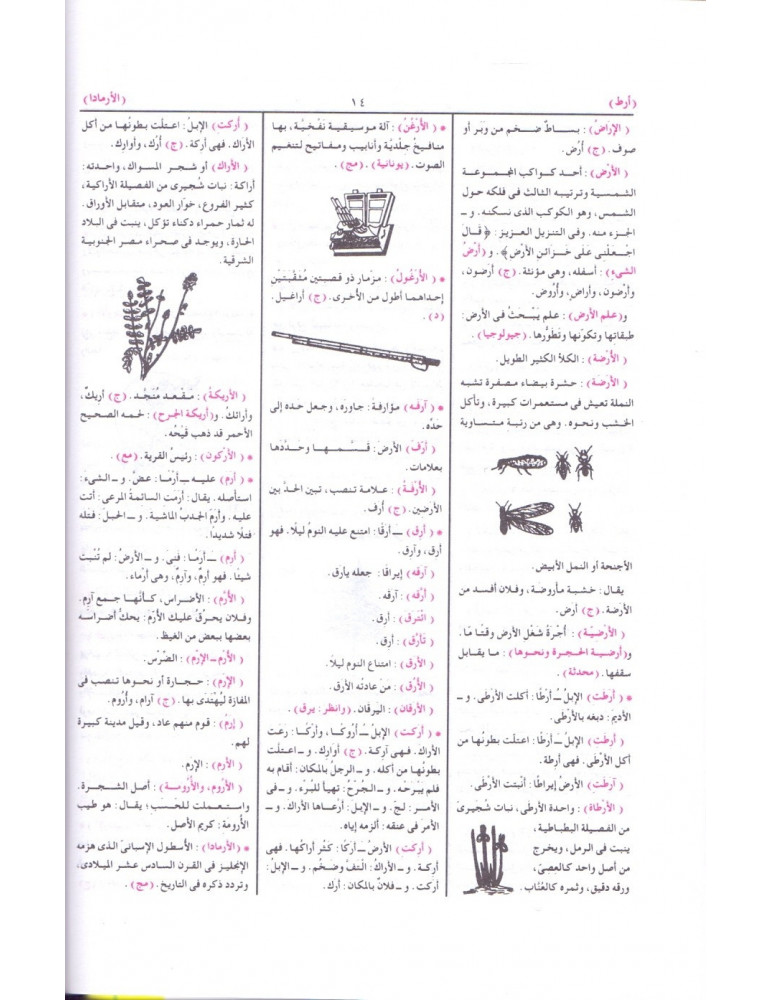 (أرط)
١٤
(الأرمادا)
( الإراضُ) : بساطٌ ضخم من وَبَر أو
صوف. (ج) أُرُض.
( الأرْض) : أحد كواكب المجموعة
الشمسية وترتيبه الثالث فى فلكه حول
الشمس، وهو الكوكب الذى نسكنه. و ــ
الجزء منه. وفى التنزيل العزيز: ﴿ قَالَ
اجْعَلْنِى عَلَى خَزَائِنِ الأَرْضِ﴾. و (أرْضُ
الشىء) : أسفله، وهى مؤنثة. (ج) أرَضون،
وأرْضون، وأراضٍ، وأُروض.
و(علم الأرض) : علم يَبْحَثُ فى الأرض:
طبقاتها وتكونها وتطوُّرها. (جيولوجيا) .
( الأرْضَة) : الكلأ الكثير الطويل.
( الأرَضَة) : حشرة بيضاء مصفرة تشبه
النملة تعيش فى مستعمرات كبيرة، وتأكل
الخشب ونحوه. وهى من رتبة متساوية
الأجنحة أو النمل الأبيض.
يقال: خشبة مأروضة، وفلان أفسد من
الأرضة. (ج) أرض.
( الأرضيّة) : أُجْرَةُ شَغْل الأرض وقتًا مّا.
و(أرضية الحجرة ونحوها) : ما يقابل
سقفها. (محدثة) .
* ( أرطت) الإبلُ ــُ أرْطًا: أكلت الأرطى. و ــ
الأديمَ: دبغه بالأرطَى.
( أرطت) الإبلُ ــَ أرَطًا: اعتلّت بطونُها من
أكل الأرْطَى. فهى أرطة.
( آرطت) الأرضُ إيراطًا: أنبتت الأرْطَى.
( الأرْطَاة) : واحدة الأرطَى، نبات شُجَيْرىّ
من الفصيلة البطباطية،
ينبت فى الرمل، ويخرج
من أصل واحد كالعِصِىّ،
ورقه دقيق، وثمره كالعُنّاب.
* ( الأرْغُنُ) : آلة موسيقية نَفْخيّة، بها
منافيخ جِلْديّة وأنابيب ومفاتيح لتنغيم
الصوت. (يونانية) . (مج) .
* ( الأرْغُول) : مزمار ذو قصبتين مُثقّبتين
إحداهما أطول من الأخرى. (ج) أراغيل.
(د) .
* ( آرفه) مؤارفةً: جاوَره، وجعل حده إلى
حَدّه.
( أرّفَ) الأرضَ: قَسَّمها وحَدّدها
بعلامات.
( الأُرْفَة) : علامة تنصب، تبين الحدّ بين
الأرضين. (ج) أُرَف.
* ( أرِق) ــَ أرَقًا: امتنع عليه النومُ ليلًا. فهو
أرِق، وآرِق.
( آرقه) إيراقًا: جعله يأرق.
( أرّقه) : آرقه.
( ائترق) : أرق.
( تأرّق) : أرق.
( الأرَق) : امتناع النوم ليلًا.
( الأُرُق) : من عادته الأرق.
( الأرَقان) : اليَرقان. (وانظر: يرق) .
* ( أركت) الإبلُ ــُ أُرُوكًا، وأركًا: رعَت
الأراك. فهى آركة. (ج) أوارك. و ــ اعتلّت
بطونُها من أكله. و ــ الرجلُ بالمكان: أقام به
فلم يبرحه. و ــ الجُرْحُ: تهيأ للبُرْء. و ــ فى
الأمر: لجّ. و ــ الإبلَ: أرعاها الأراك. و ــ
الأمرَ فى عنقه: ألزمه إياه.
( أركت) الأرضُ ــَ أركًا: كثُر أراكُها. فهى
أركة. و ــ الأراك: التفّ وضخُم. و ــ الإبلُ:
أركت. و ــ فلانٌ بالمكان: أرك.
( أُركت) الإبلُ: اعتلّت بطونُها من أكل
الأراك. فهى أركة. (ج) أُرُك، وأوارك.
( الأراك) أو شجر المسواك، واحدته:
أراكة: نبات شُجيرى من الفصيلة الأراكية،
كثير الفروع، خوّار العود، متقابل الأوراق.
له ثمار حمراء دكناء تؤكل، ينبت فى البلاد
الحارة، ويوجد فى صحراء مصر الجنوبية
الشرقية.
( الأريكة) : مَقْعد مُنَجّد. (ج) أريكٌ،
وأرائكُ. و(أريكة الجرح) : لحمه الصحيح
الأحمر قد ذهب قَيْحُه.
* ( الأركون) : رئيسُ القرية. (مع) .
* ( أرم) عليه ــِ أرمًا: عضّ. و ــ الشىءَ:
استأصله. يقال: أرمَت السائمةُ المرعى: أتت
عليه. وأرَمَ الجدبُ الماشية. و ــ الحبلَ: فتله
فتلًا شديدًا.
( أرِم) ــَ أرمًا: فنى. و ــ الأرضُ: لم تُنبت
شيئًا. فهو أرِمٌ، وآرمٌ، وهى أرماء.
( الأُرّم) : الأضراس، كأنّها جمع آرِم.
وفلان يحرّقُ عليك الأُرّمَ: يحكُّ أضراسَه
بعضها ببعض من الغيظ.
( الأرَم ــ الإرَم) : الضّرْس.
( الإرَم) : حجارة أو نحوها تنصب فى
المفازة ليُهْتَدَى بها. (ج) آرام، وأُروم.
( إرَمُ) : قوم منهم عاد، وقيل مدينة كبيرة
لهم.
( الأرم) : الإرم.
( الأُروم، والأُرومة) : أصل الشجرة.
واستعملت للحَسَب؛ يقال: هو طيب
الأرُومَة: كريم الأصل.
* (الأرمادا) : الأسطول الإسبانىّ الذى هزمه
الإنجليز فى القرن السادس عشر الميلادى،
وتردد ذكره فى التاريخ. (مج) .